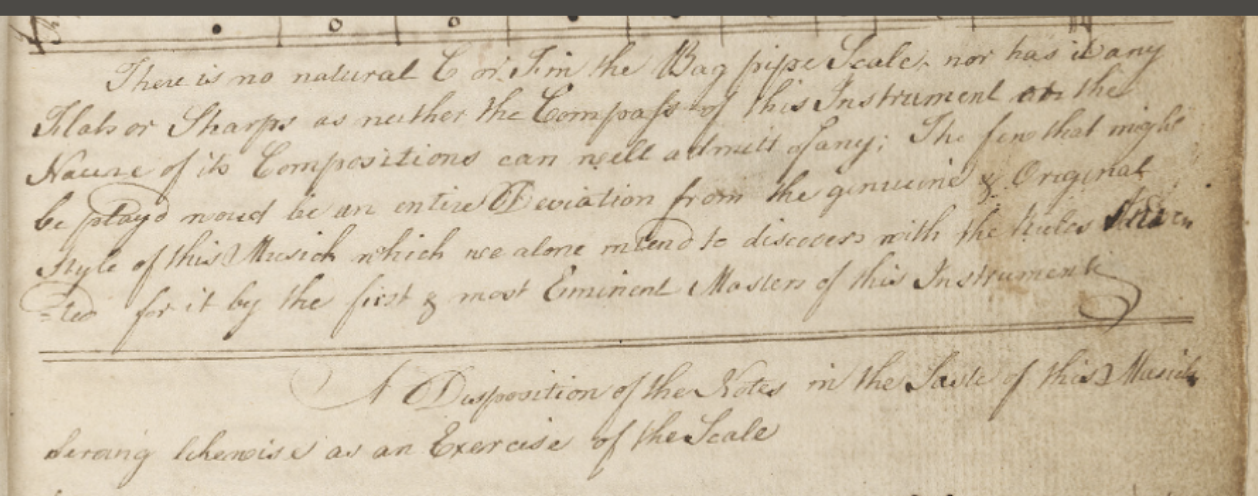 There is no natural C or F in the Bag pipe Scale, nor has it any
Flats or Sharps as neither the Compass of this Instrument or the
Nature of its Compositions can well admitt of any; The few that might
be play'd woud be an entire Deviation from the genuine & Original
Style of this Musick which we alone intend to discover with the Rules Inven
=ted for it by the first & most Eminent Masters of this Instrument
A Disposition of the Notes in the Taste of this Musick
Serving likewise as an Exercise of the Scale